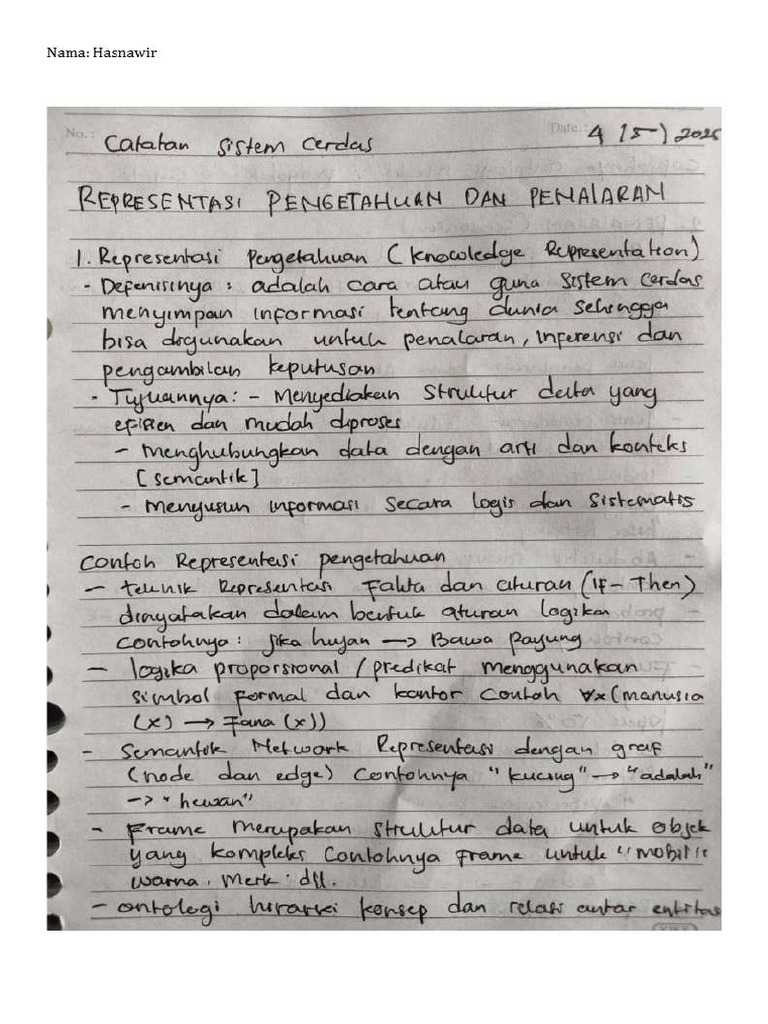 Nama: Hasnawir
No.: Date.: 4 / 5 / 2025
Catatan Sistem Cerdas
REPRESENTASI PENGETAHUAN DAN PENALARAN
1. Representasi Pengetahuan (Knowledge Representation)
- Defenisinya : adalah cara atau guna Sistem Cerdas
menyimpan informasi tentang dunia sehingga
bisa digunakan untuk penalaran, inferensi dan
pengambilan keputusan
- Tujuannya : - Menyediakan Struktur data yang
efisien dan mudah diproses
- Menghubungkan data dengan arti dan konteks
[semantik]
- Menyusun informasi Secara logis dan Sistematis
Contoh Representasi pengetahuan
- teknik Representasi Fakta dan aturan (IF - Then)
dinyatakan dalam bentuk aturan logika
Contohnya : jika hujan → Bawa Payung
- logika proporsional / predikat menggunakan
simbol formal dan kantor Contoh ∀x (manusia
(x) → Fana (x))
- Semantik Network Representasi dengan graf
(node dan edge) Contohnya "kucing" → "adalah"
→ "hewan"
- Frame merupakan struktur data untuk objek
yang kompleks Contohnya Frame untuk "mobil":
warna, Merk, dll.
- ontologi hirarki konsep dan relasi antar entitas